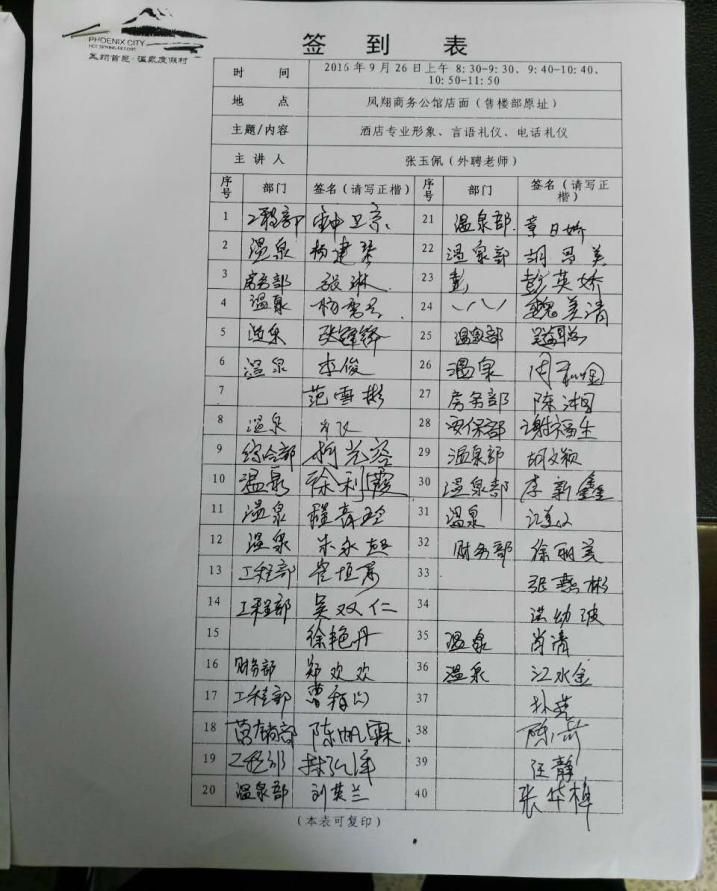 PHOENIX CITY
HOT SPRING RESORT
凤翔首邑·温泉度假村
签到表
时间 2016年9月26日上午8:30-9:30、9:40-10:40、
10:50-11:50
地点 凤翔商务公馆店面(售楼部原址)
主题/内容 酒店专业形象、言语礼仪、电话礼仪
主讲人 张玉佩(外聘老师)
序号 部门 签名(请写正楷) 序号 部门 签名(请写正楷)
1 工程部 卫京 21 温泉部 章日娇
2 温泉 杨建琴 22 温泉部 胡昌美
3 房务部 张琳 23 彭 彭英娇
4 温泉 杨 24 魏美清
5 温泉 张锋 25 温泉部
6 温泉 李俊 26 温泉 周
7 范雪彬 27 房务部 陈
8 温泉 28 安保部 谢福生
9 综合部 柯 29 温泉部 胡文颖
10 温泉 徐利霞 30 温泉部 李新鑫
11 温泉 程 31 温泉 江
12 温泉 朱永超 32 财务部 徐丽美
13 工程部 33 张燕彬
14 工程部 吴双仁 34 洪幼玻
15 徐艳丹 35 温泉 肖清
16 财务部 郑欢欢 36 温泉 江水金
17 工程部 曹 37
18 营销部 陈帆霖 38 陈
19 工程部 林 39 汪静
20 温泉部 刘英兰 40 张华
(本表可复印)